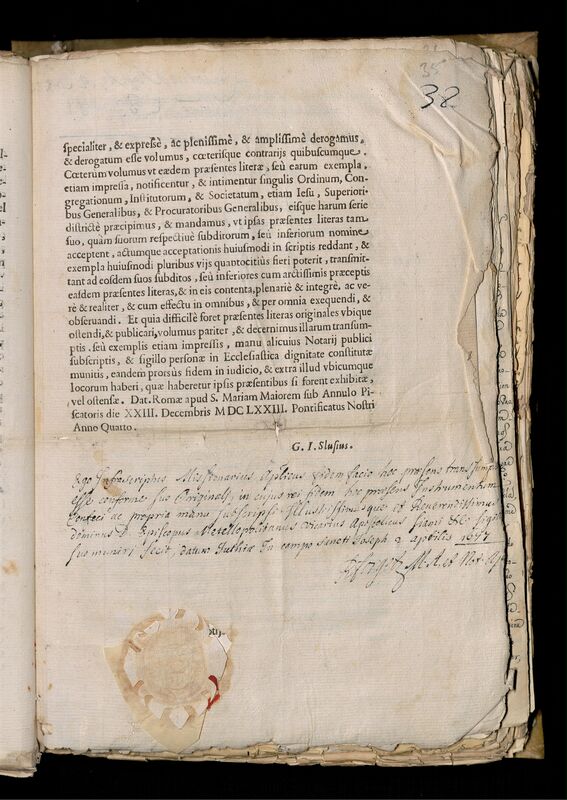 35
38
specialiter, & expressè, ac plenissimè, & amplissimè derogamus,
& derogatum esse volumus, cæterisque contrarijs quibuscumque.
Cæterum volumus vt eædem præsentes literæ, seù earum exempla,
etiam impressa, notificentur, & intimentur singulis Ordinum, Con-
gregationum, Institutorum, & Societatum, etiam Iesu, Superiori-
bus Generalibus, & Procuratoribus Generalibus, eisque harum serie
districtè præcipimus, & mandamus, vt ipsas præsentes literas tam
suo, quàm suorum respectiuè subditorum, seù inferiorum nomine
acceptent, actumque acceptationis huiusmodi in scriptis reddant, &
exempla huiusmodi pluribus vijs quantocitiùs fieri poterit, transmit-
tant ad eosdem suos subditos, seù inferiores cum arctissimis præceptis
easdem præsentes literas, & in eis contenta, plenariè & integrè, ac ve-
rè & realiter, & cum effectu in omnibus, & per omnia exequendi, &
obseruandi. Et quia difficilè foret præsentes literas originales vbique
ostendi, & publicari, volumus pariter, & decernimus illarum transum-
ptis, seù exemplis etiam impressis, manu alicuius Notarij publici
subscriptis, & sigillo personæ in Ecclesiastica dignitate constitutæ
munitis, eandem prorsùs fidem in iudicio, & extra illud vbicumque
locorum haberi, quæ haberetur ipsis præsentibus si forent exhibitæ,
vel ostensæ. Dat. Romæ apud S. Mariam Maiorem sub Annulo Pi-
scatoris die XXIII. Decembris MDCLXXIII. Pontificatus Nostri
Anno Quarto.
G. I. Slusius.
Ego Infrascriptus Missionarius Aplicus fidem facio hoc præsens transumptum
esse conforme suo Originali, in cujus rei fidem hoc præsens Instrumentum
confeci ac propria manu subscripsi Illustrissimusque et Reverendissimus
dominus D. Episcopus Metellopolitanus Vicarius Apostolicus Siami &c. sigillo
suo muniri fecit, datum Juthiæ In campo sancti Joseph 2 aprilis 1677
M. A. et Not. Ap